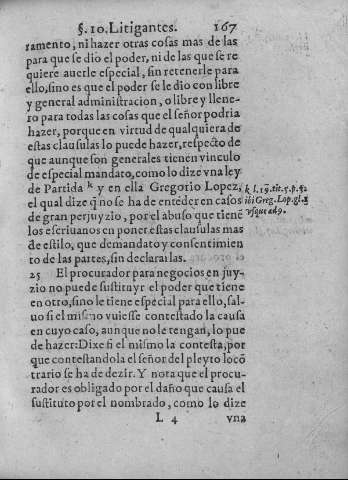 §. 10. Litigantes. 167
ramento, ni hazer otras cosas mas de las
para que se dio el poder, ni de las que se re
quiere auerle especial, sin retenerle para
ello, sino es que el poder se le dio con libre
y general administracion, o libre y llene-
ro para todas las cosas que el señor podria
hazer, porque en virtud de qualquiera de
estas clausulas lo puede hazer, respecto de
que aunque son generales tienen vinculo
de especial mandato, como lo dize vna ley
de Partida k y en ella Gregorio Lopez,
el qual dize q̃ no se ha de entẽder en casos
de gran perjuyzio, por el abuso que tienẽ
los escriuanos en poner estas clausulas mas
de estilo, que de mandato y consentimien
to de las partes, sin declararlas.
k l. 19. tit. 5. p. 3.
ibi Greg. Lop. gl.
vsque ad 9.
25 El procurador para negocios en juy-
zio no puede sustituyr el poder que tiene
en otro, sino le tiene especial para ello, sal-
uo si el mismo vuiesse contestado la causa
en cuyo caso, aunque no le tengan, lo pue
de hazer: Dixe si el mismo la contesta, por
que contestandola el señor del pleyto locõ
trario se ha de dezir. Y nota que el procu-
rador es obligado por el daño que causa el
sustituto por el nombrado, como lo dize
L 4 vna